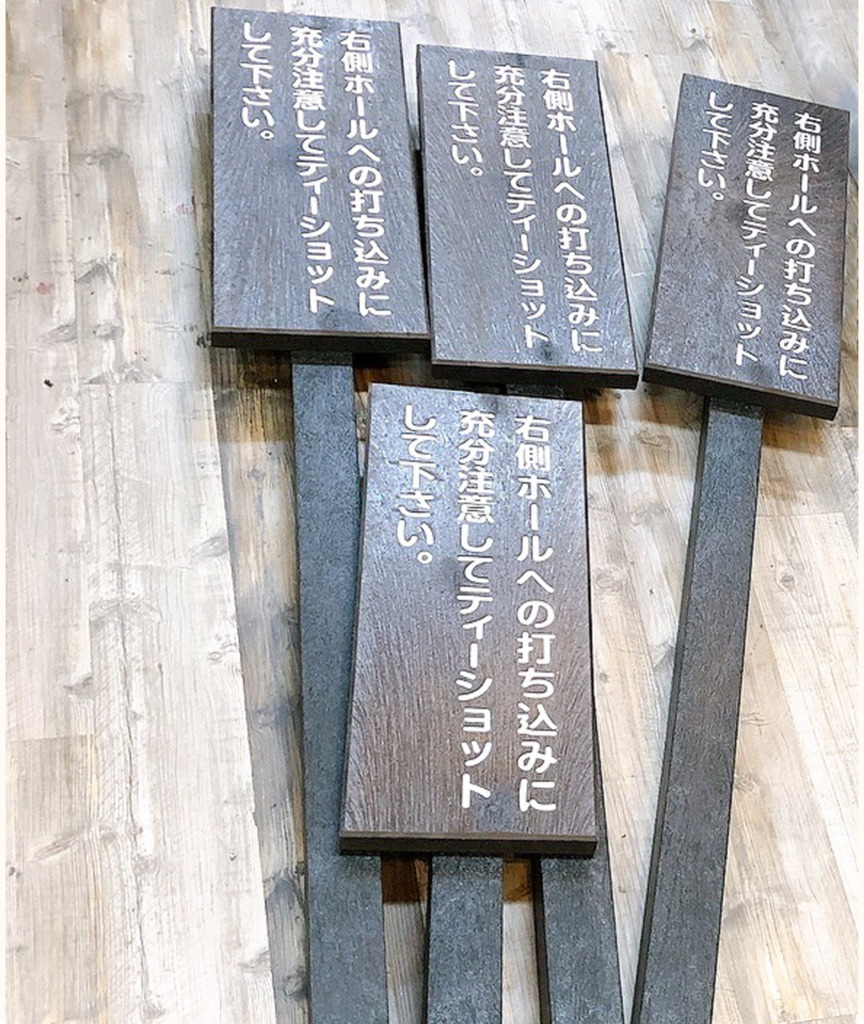 右側ホールへの打ち込みに
充分注意してティーショット
して下さい。
右側ホールへの打ち込みに
充分注意してティーショット
して下さい。
右側ホールへの打ち込みに
充分注意してティーショット
して下さい。
右側ホールへの打ち込みに
充分注意してティーショット
して下さい。